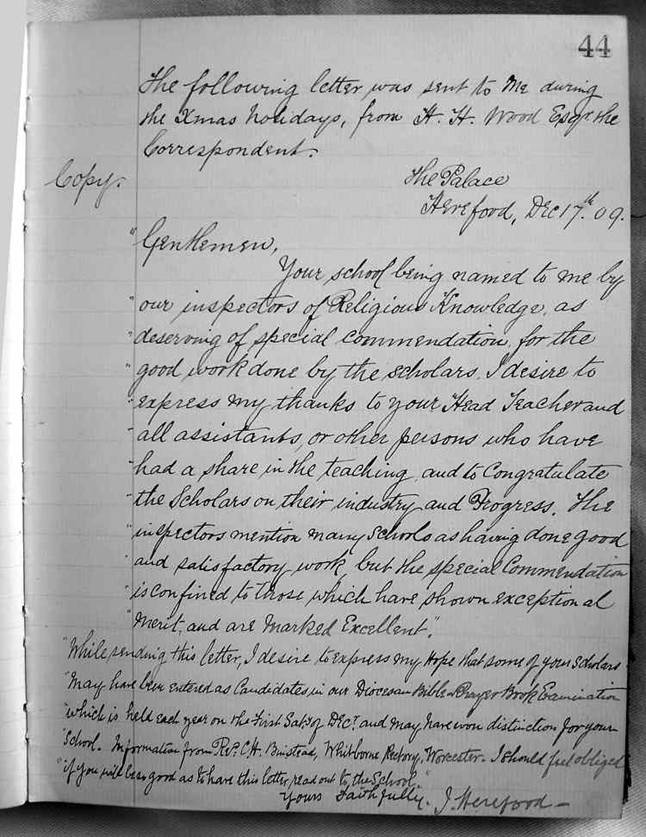 44
The following letter was sent to me during
the Xmas holidays, from H. H. Wood Esqr. the
Correspondent.
Copy.
The Palace
Hereford, Dec 17th 09.
"Gentlemen,
Your school being named to me by
"our inspectors of Religious Knowledge, as
"deserving of special commendation, for the
"good work done by the scholars, I desire to
"express my thanks to your Head Teacher and
"all assistants, or other persons who have
"had a share in the teaching, and to Congratulate
"the Scholars on their industry and Progress. The
"inspectors mention many Schools as having done good
"and satisfactory work, but the special Commendation
"is confined to those which have shown exceptional
"Merit, and are Marked Excellent".
"While sending this letter, I desire to express my Hope that some of your Scholars
"May have been entered as Candidates, in our Diocesan Bible & Prayer Book Examination
"which is held each year on the First Saty of Dect. and may have won distinction for your
"School. Information from Revd. C. H. Binstead, Whitborne Rectory, Worcester. I should feel obliged
"if you will be so good as to have this letter, read out to the School."
Yours Faithfully. J. Hereford—